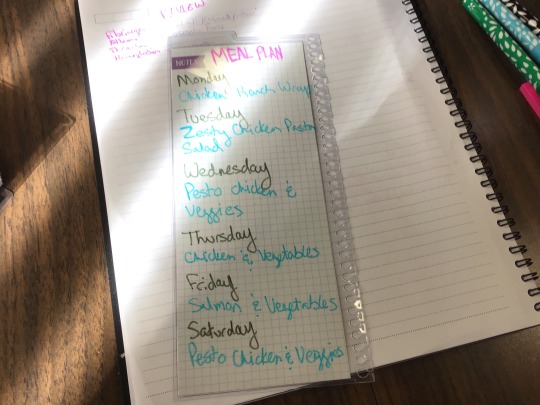 REVIEW
NOTES
MEAL PLAN
Monday
Chicken Ranch Wrap
Tuesday
Zesty Chicken Pasta
Salad
Wednesday
Pesto Chicken &
Veggies
Thursday
Chicken & Vegetables
Friday
Salmon & Vegetables
Saturday
Pesto Chicken & Veggies